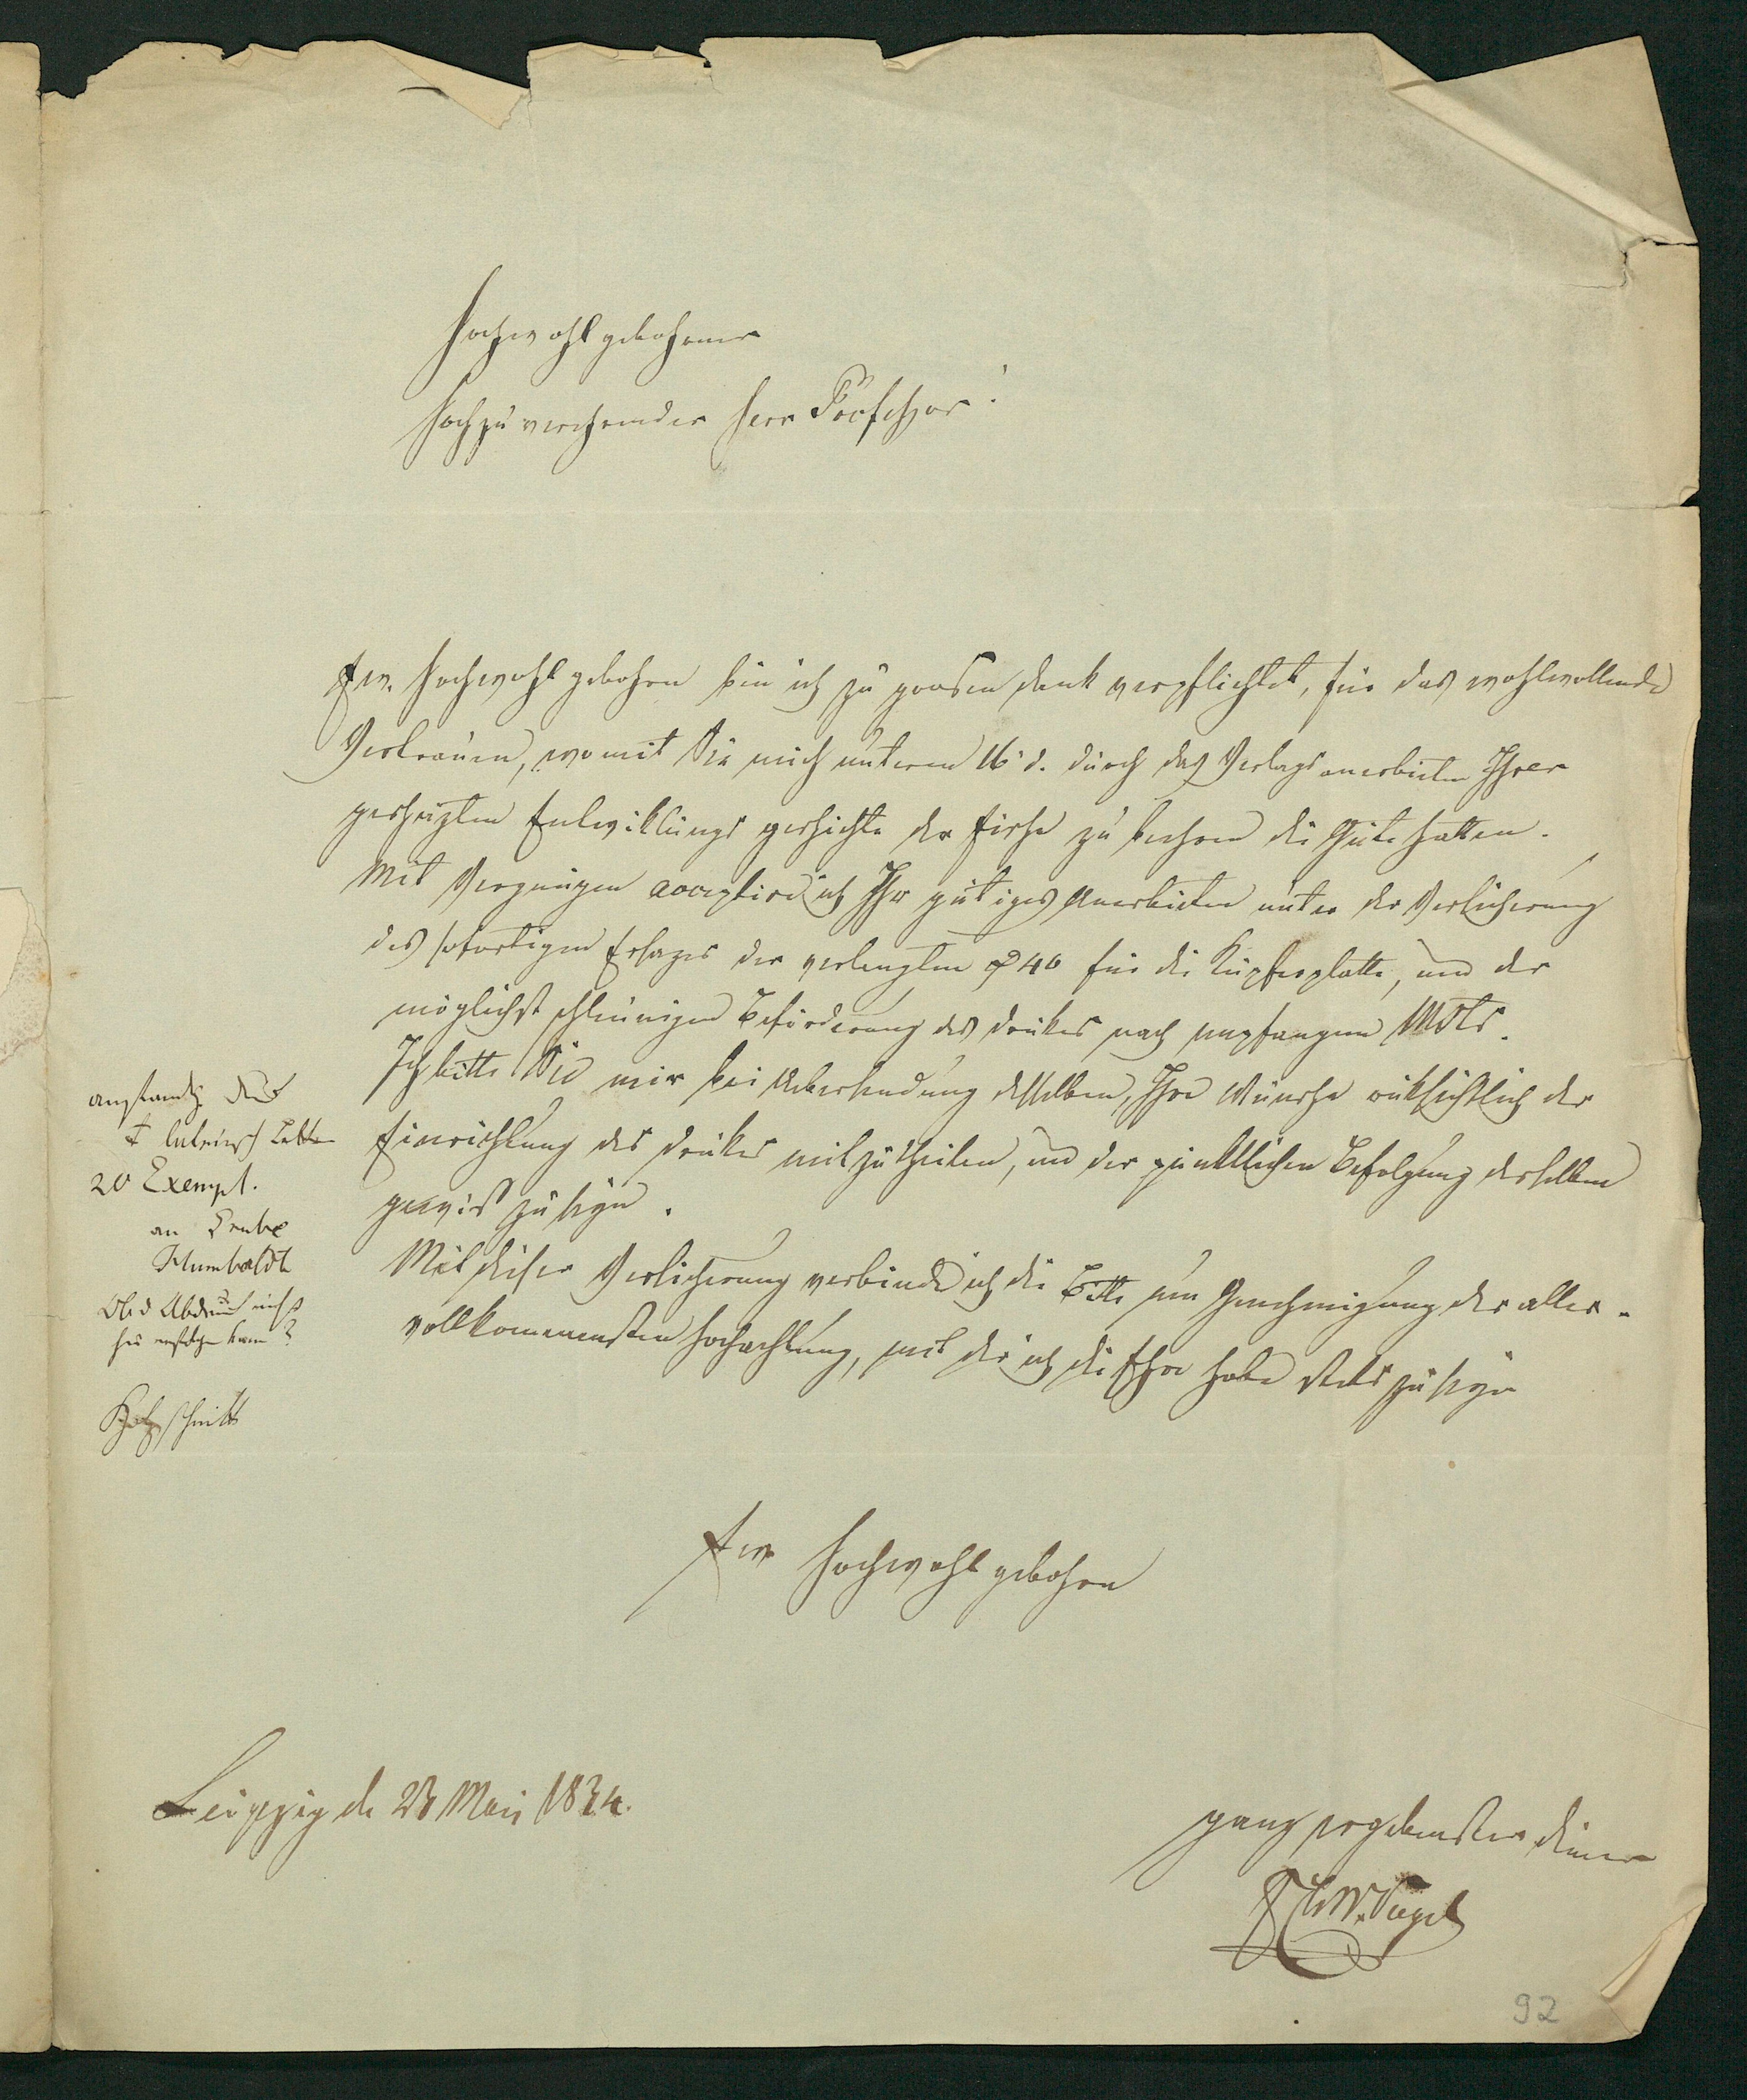 Hochwohlgebohrner
Hochzuverehrender Herr Professor!
Ew. Hochwohlgebohrn bin ich zu grosen Dank verpflichtet, für das wohlwollende
Vertrauen, womit Sie mich unterm 16 d. durch das Verlagsanerbieten Ihrer
geschäzten Entwiklungsgeschichte der Fische zu beehren die Güte hatten.
Mit Vergnügen acceptire ich Ihr gütiges Anerbieten unter der Versicherung
des sofortigen Ersazes der verlangten 40 für die Kupferplatte, und der
möglichst schleunigen Beförderung des Drukes nach empfangenem Mscts.
Ich bitte Sie mir bei Uebersendung desselben, Ihre Wünsche rüksichtlich der
Einrichtung des Drukes mitzutheilen, und der pünktlichen Befolgung derselben
gewiß zu seyn.
Mit dieser Versicherung verbinde ich die Bitte um Genehmigung der aller-
vollkommensten Hochachtung, mit der ich die Ehre habe stets zu seyn
Ew Hochwohlgebohrn
Leipzig d. 23 Mai 1834.
ganz ergebenster Diener
F C W. Vogel
lateinisch Letter
20 Exempl.
an
Humboldt
Ob d Abdruck nicht
hier erfolgen kann?
Holzschnitt
92